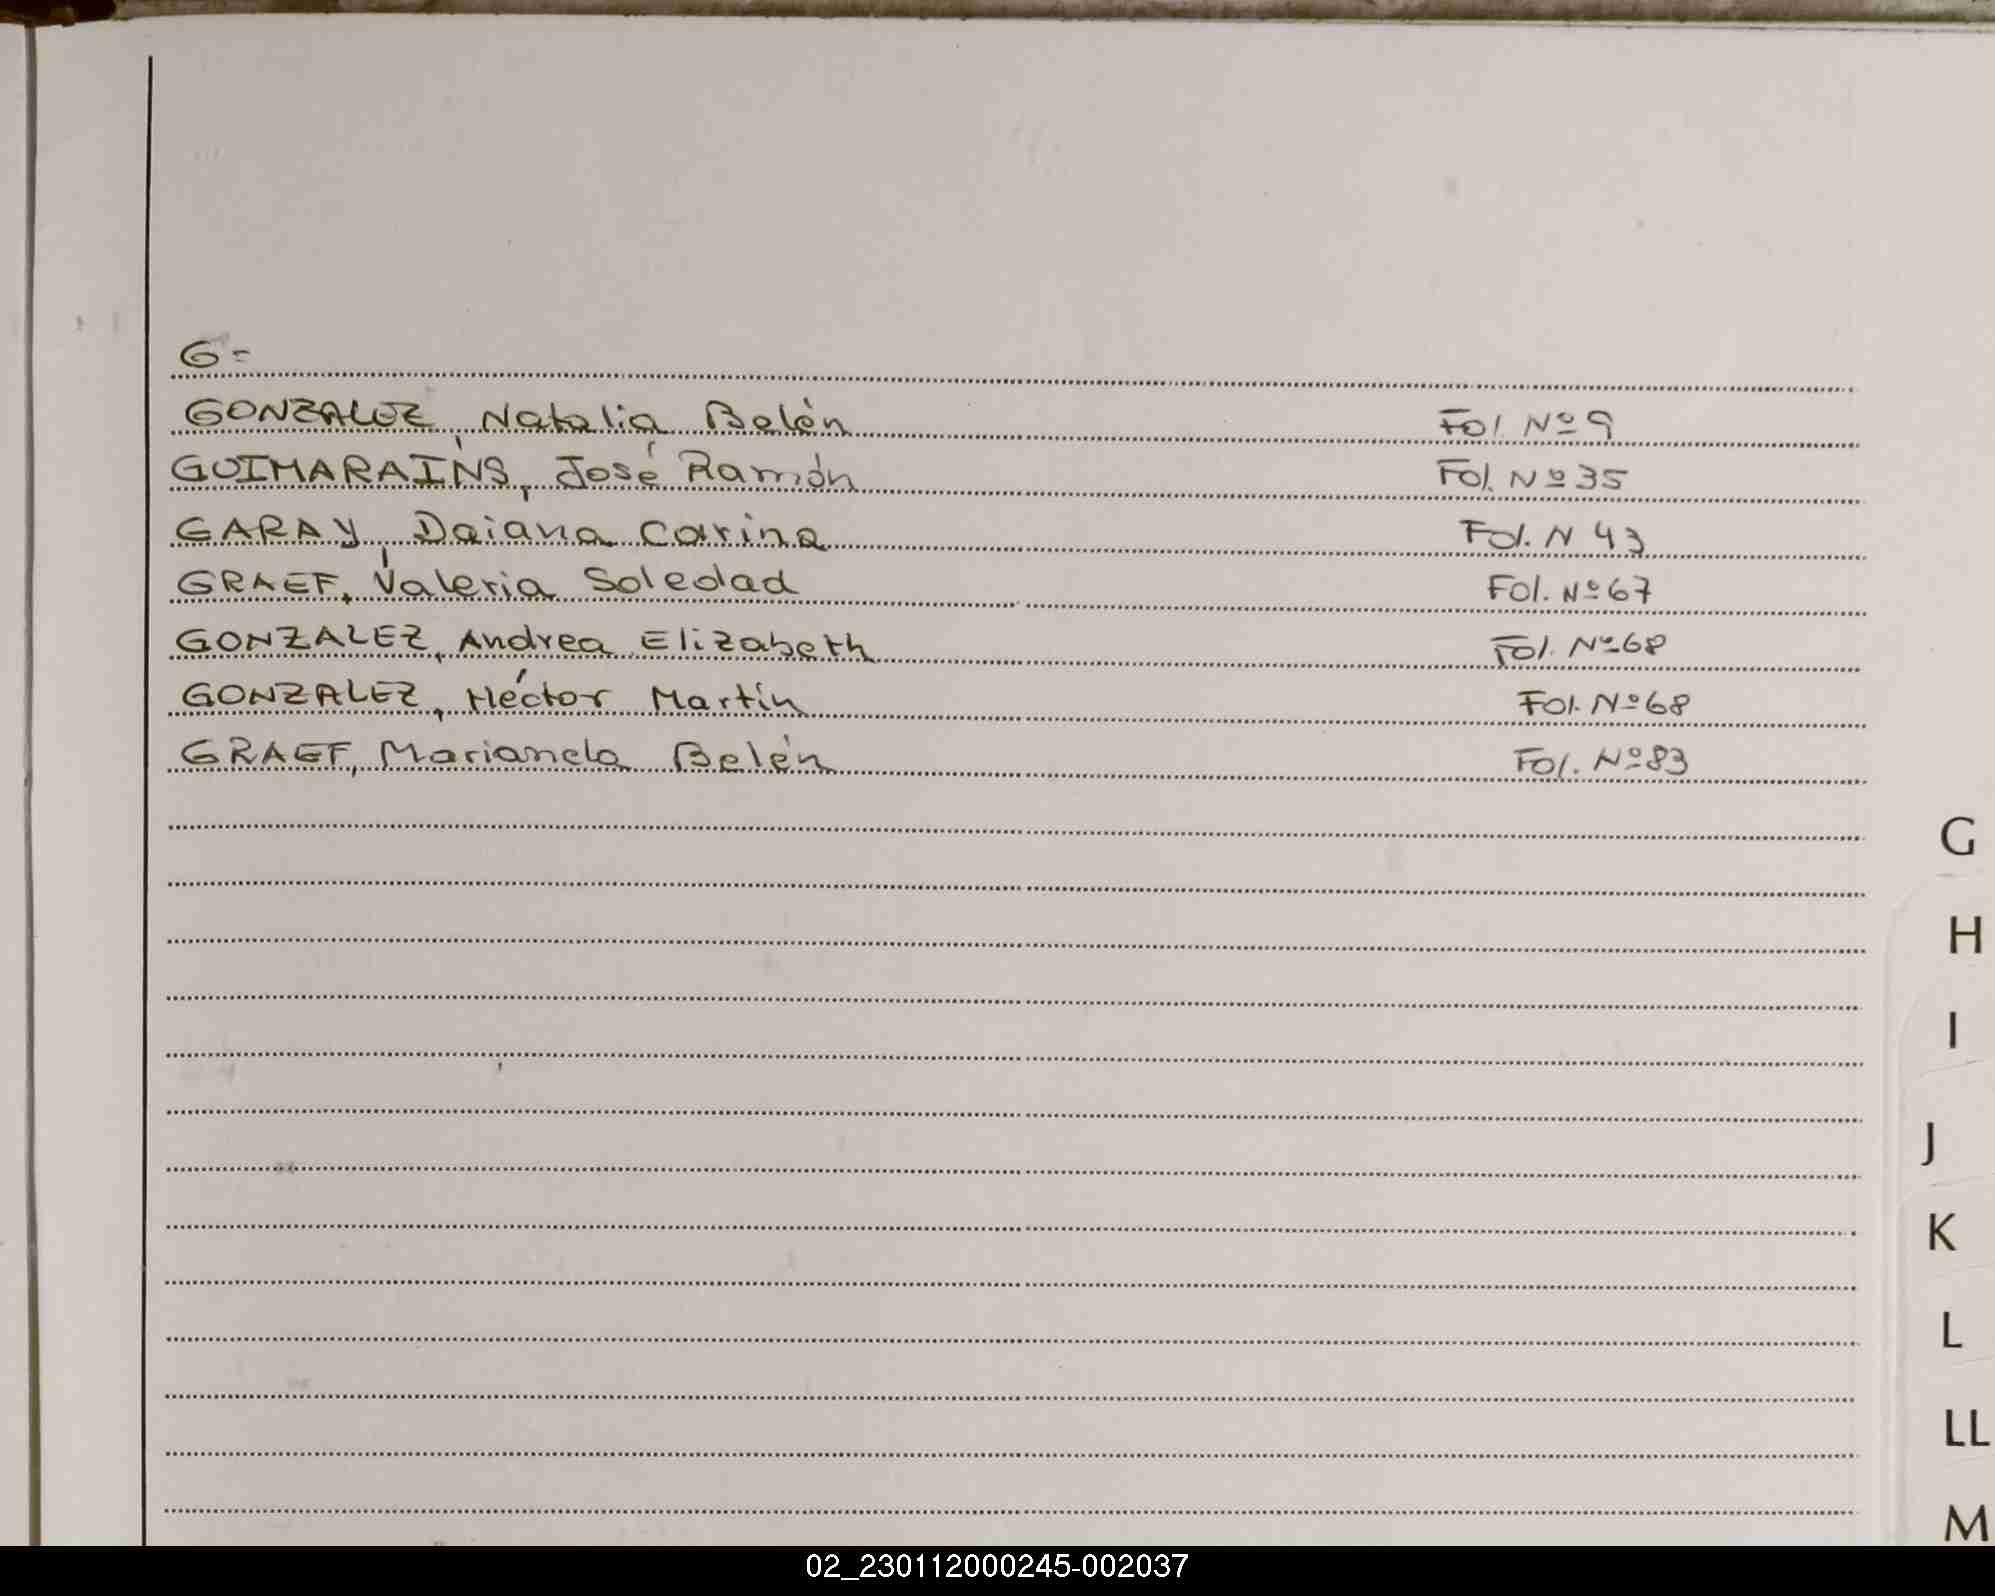 G=
GONZALEZ, Natalia Belén Fol. Nº 9
GUIMARAINS, José Ramón Fol. Nº 35
GARAY, Daiana Carina Fol. N 43
GRAEF, Valeria Soledad Fol. Nº 67
GONZALEZ, Andrea Elizabeth Fol. Nº 68
GONZALEZ, Héctor Martín Fol. Nº 68
GRAEF, Marianela Belén Fol. Nº 83
G
H
I
J
K
L
LL
M
02_230112000245-002037